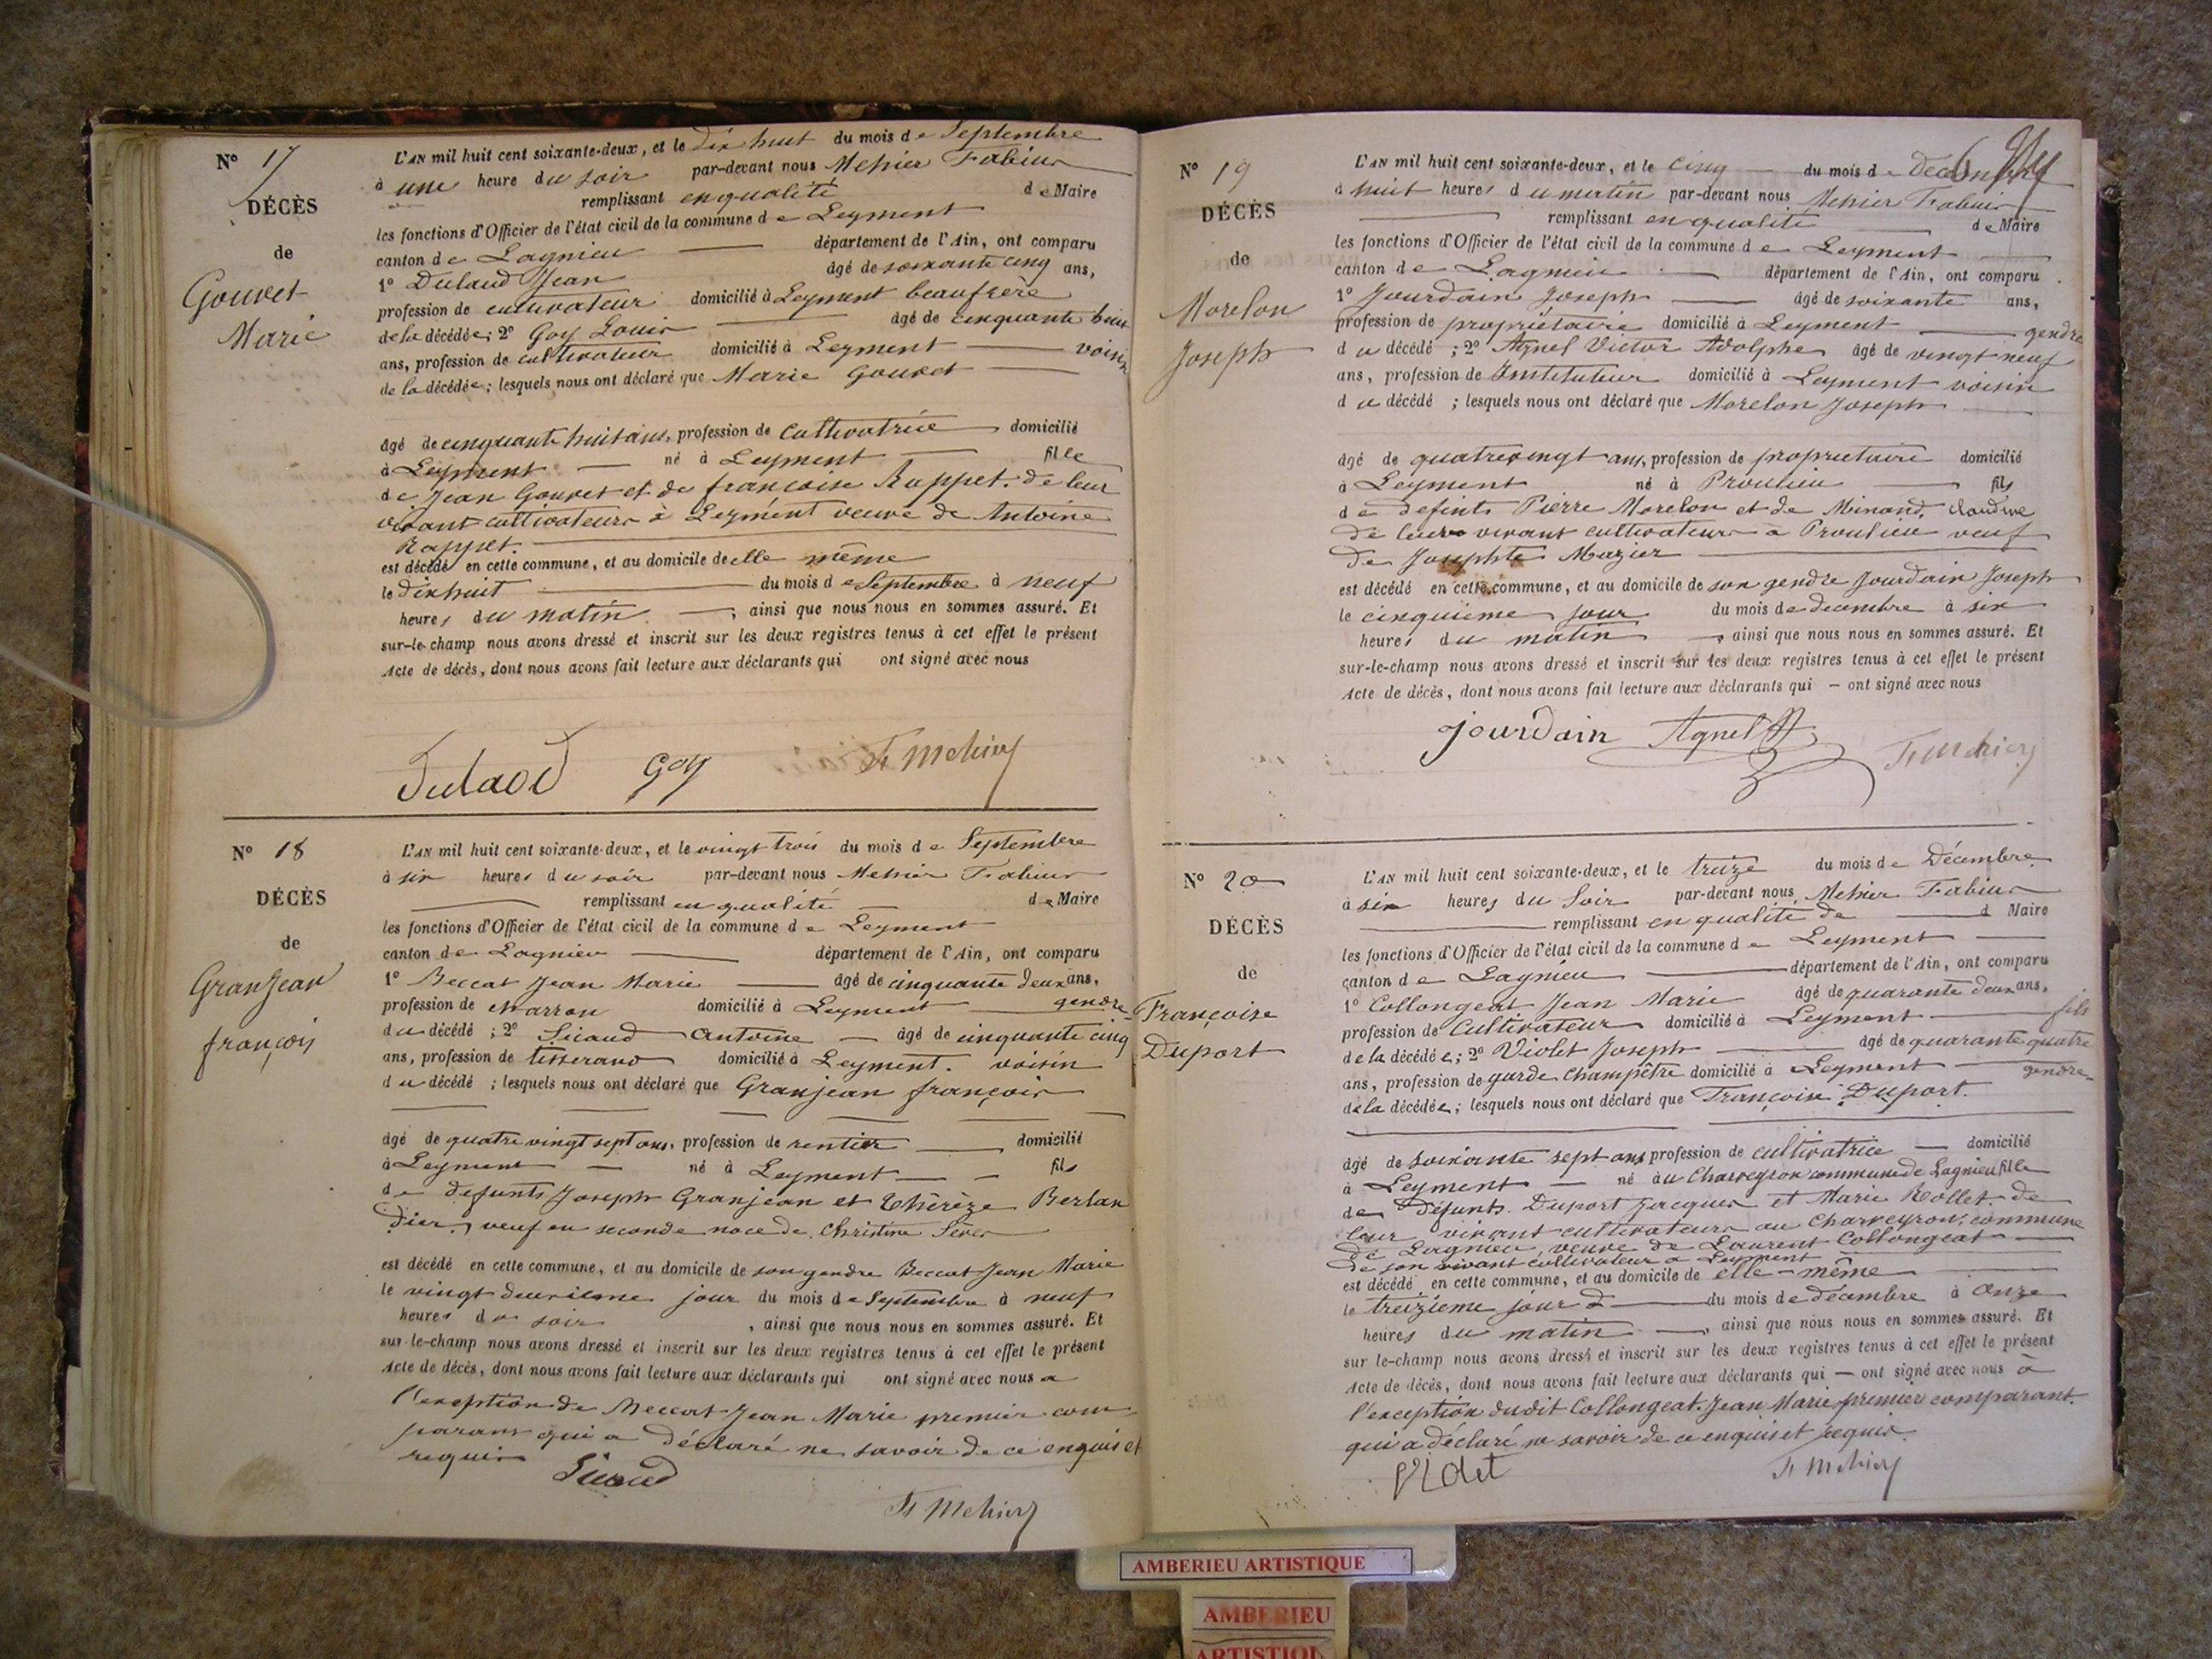 N° 17
DÉCÈS
de
Gouvet
Marie
L'AN mil huit cent soixante-deux, et le dix huit du mois de Septembre
à une heure du soir par-devant nous Mehier Fabius
remplissant en qualité de Maire
les fonctions d'Officier de l'état civil de la commune de Leyment
canton de Lagnieu département de l'Ain, ont comparu
1° Dulaud Jean âgé de soixante cinq ans,
profession de cultivateur domicilié à Leyment beaufrère
de la décédée; 2° Goy Louis âgé de cinquante huit
ans, profession de cultivateur domicilié à Leyment voisin
de la décédée; lesquels nous ont déclaré que Marie Gouvet
âgé de cinquante huit ans, profession de Cultivatrice domicilié
à Leyment né à Leyment fille
de Jean Gouvet et de françoise Rappet. de leur
vivant cultivateurs à Leyment veuve de Antoine
Rappet.
est décédé en cette commune, et au domicile de elle même
le dixhuit du mois de Septembre à neuf
heures du matin, ainsi que nous nous en sommes assuré. Et
sur-le-champ nous avons dressé et inscrit sur les deux registres tenus à cet effet le présent
Acte de décès, dont nous avons fait lecture aux déclarants qui ont signé avec nous
Goy F Mehier
N° 18
DÉCÈS
de
Granjean
françois
L'AN mil huit cent soixante-deux, et le vingt trois du mois de Septembre
à six heures du soir par-devant nous Mehier Fabius
remplissant en qualité de Maire
les fonctions d'Officier de l'état civil de la commune de Leyment
canton de Lagnieu département de l'Ain, ont comparu
1° Beccat Jean Marie âgé de cinquante deux ans,
profession de charron domicilié à Leyment gendre
du décédé; 2° Sicaud Antoine âgé de cinquante cinq
ans, profession de tisserand domicilié à Leyment. voisin
du décédé; lesquels nous ont déclaré que Granjean françois
âgé de quatre vingt sept ans, profession de rentier domicilié
à Leyment né à Leyment fils
de defunts Joseph Granjean et Thérèze Berlan
dier, veuf en seconde noce de Christine
est décédé en cette commune, et au domicile de son gendre Beccat Jean Marie
le vingt deuxieme jour du mois de Septembre à neuf
heures du soir, ainsi que nous nous en sommes assuré. Et
sur le-champ nous avons dressé et inscrit sur les deux registres tenus à cet effet le présent
Acte de décès, dont nous avons fait lecture aux déclarants qui ont signé avec nous a
l'exception de Beccat Jean Marie premier com
parant qui a déclaré ne savoir de ce enquis et
requis
Sicaud
F Mehier
N° 19
DÉCÈS
de
Morelon
Joseph
L'AN mil huit cent soixante-deux, et le cinq du mois de Decembre
à huit heures du matin par-devant nous Mehier Fabius
remplissant en qualité de Maire
les fonctions d'Officier de l'état civil de la commune de Leyment
canton de Lagnieu département de l'Ain, ont comparu
1° Jourdain Joseph âgé de soixante ans,
profession de propriétaire domicilié à Leyment gendre
du décédé; 2° Agnel Victor Adolphe âgé de vingt neuf
ans, profession de Instituteur domicilié à Leyment voisin
du décédé; lesquels nous ont déclaré que Morelon Joseph
âgé de quatrevingt ans, profession de proprietaire domicilié
à Leyment né à Proulieu fils
de defints Pierre Morelon et de Minand, Claudine
de leurs vivant cultivateurs à Proulieu veuf
de Josephte Mazier
est décédé en cette commune, et au domicile de son gendre Jourdain Joseph
le cinquieme jour du mois de decembre à six
heures du matin, ainsi que nous nous en sommes assuré. Et
sur-le-champ nous avons dressé et inscrit sur les deux registres tenus à cet effet le présent
Acte de décès, dont nous avons fait lecture aux déclarants qui – ont signé avec nous
Jourdain Agnel F Mehier
N° 20
DÉCÈS
de
Françoise
Duport
L'AN mil huit cent soixante-deux, et le treize du mois de Décembre
à six heures du Soir par-devant nous, Mehier Fabius
remplissant en qualité de d Maire
les fonctions d'Officier de l'état civil de la commune de Leyment
canton de Lagnieu département de l'Ain, ont comparu
1° Collongeat Jean Marie âgé de quarante deux ans,
profession de Cultivateur domicilié à Leyment fils
de la décédée; 2° Violet Joseph âgé de quarante quatre
ans, profession de garde champêtre domicilié à Leyment gendre
de la décédée; lesquels nous ont déclaré que Françoise Duport.
âgé de soixante sept ans profession de cultivatrice domicilié
à Leyment né au Charveyron commune de Lagnieu fille
de défunts Duport Jacques et Marie Rollet de
leur vivant cultivateurs au Charveyron, commune
de Lagnieu, veuve de Laurent Collongeat
de son vivant cultivateur à Leyment
est décédé en cette commune, et au domicile de elle-même
le treizième jour d du mois de décembre à onze
heures du matin, ainsi que nous nous en sommes assuré. Et
sur le-champ nous avons dressé et inscrit sur les deux registres tenus à cet effet le présent
Acte de décès, dont nous avons fait lecture aux déclarants qui – ont signé avec nous à
l'exception dudit Collongeat Jean Marie premier comparant.
qui a déclaré ne savoir de ce enquis et requis.
F Mehier
AMBERIEU ARTISTIQUE
AMBERIEU
ARTISTIQU